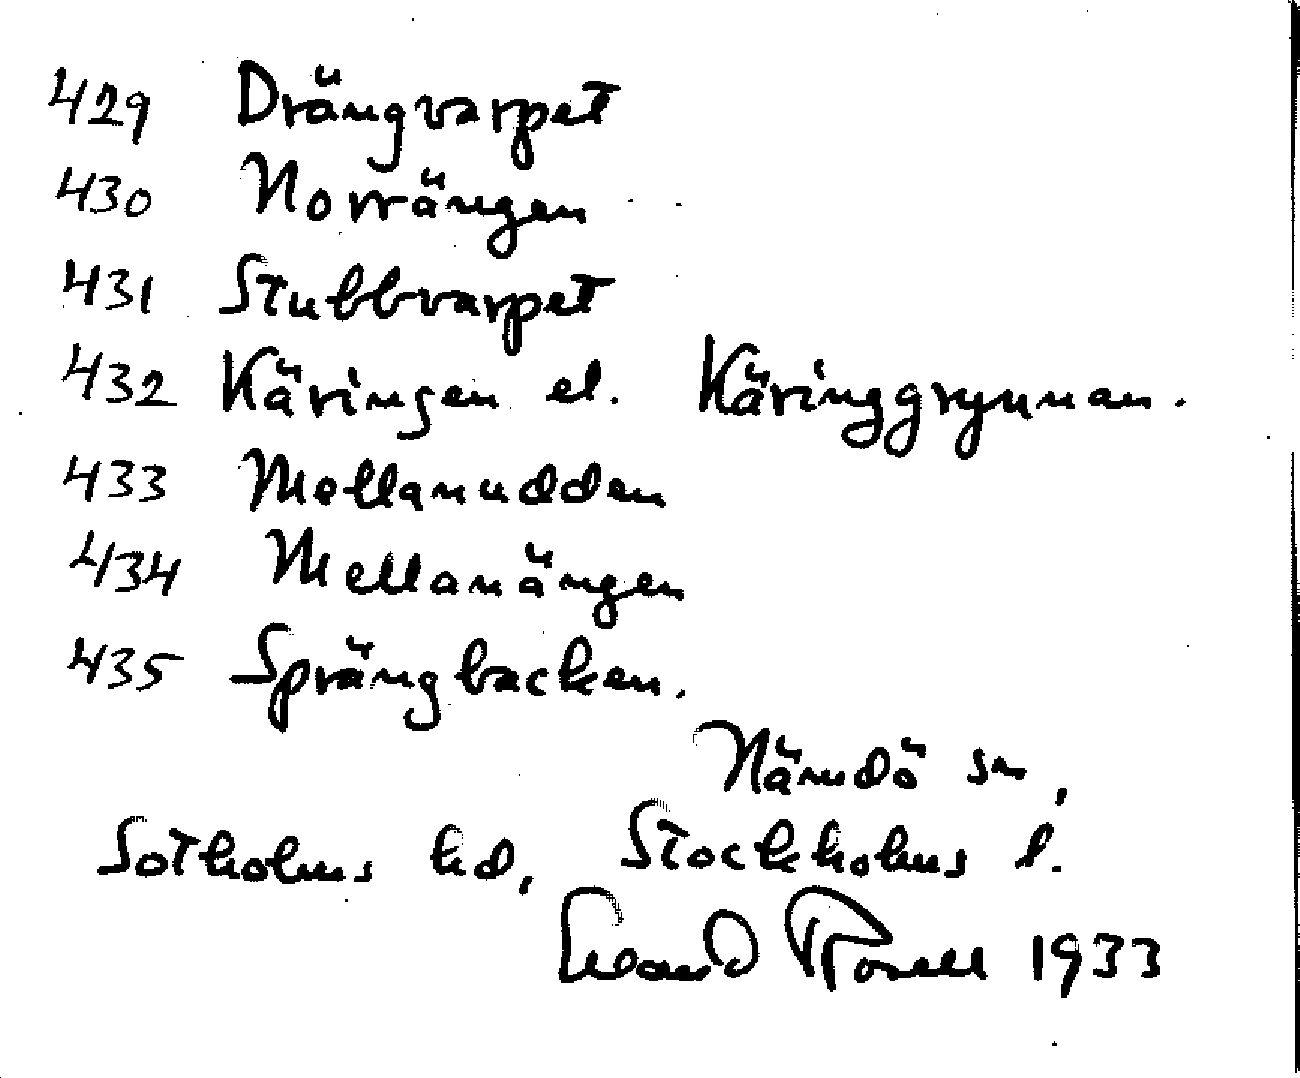 429 Drängvarpet
430 Norrängen
431 Stubbvarpet
432 Käringen el. Käringgrynnan.
433 Mellanudden
434 Mellanängen
435 Sprängbacken.
Nämdö sn,
Sotholms hd, Stockholms l.
1933